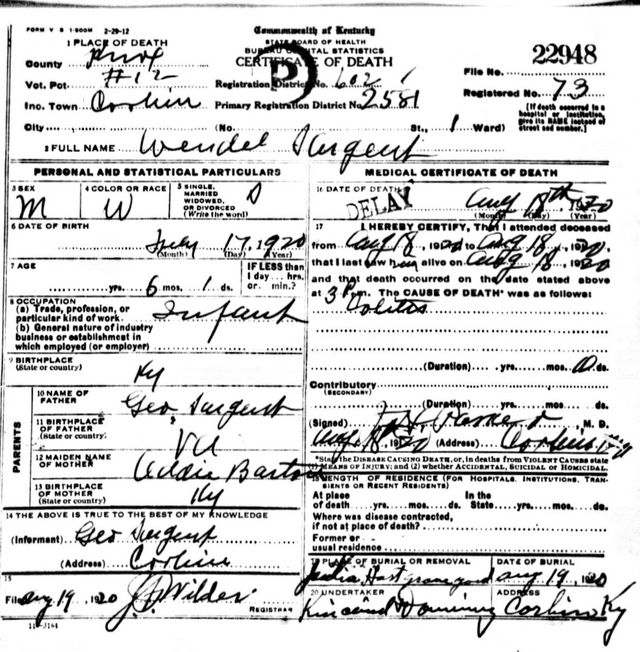 FORM V S 1-500M 2-29-12
Commonwealth of Kentucky
STATE BOARD OF HEALTH
BUREAU OF VITAL STATISTICS
CERTIFICATE OF DEATH
1 PLACE OF DEATH
County Knox
Vot. Pct #12
Inc. Town Corbin
City (No. St., 1 Ward)
Registration District No. 602
Primary Registration District No. 2581
P
22948
File No.
Registered No. 73
[If death occurred in a hospital or institution, give its NAME instead of street and number.]
2 FULL NAME Wendel Sargent
PERSONAL AND STATISTICAL PARTICULARS
3 SEX
M
4 COLOR OR RACE
W
5 SINGLE, MARRIED WIDOWED, OR DIVORCED (Write the word)
S
6 DATE OF BIRTH
July 17, 1920
(Month) (Day) (Year)
7 AGE
yrs. 6 mos. 1 ds.
IF LESS than 1 day ... hrs. or min.?
8 OCCUPATION
(a) Trade, profession, or particular kind of work
Infant
(b) General nature of industry business or establishment in which employed (or employer)
9 BIRTHPLACE
(State or country)
Ky
PARENTS
10 NAME OF FATHER
Geo, Sargent
11 BIRTHPLACE OF FATHER
(State or country)
VA
12 MAIDEN NAME OF MOTHER
Addie Barton
13 BIRTHPLACE OF MOTHER
(State or country)
Ky
14 THE ABOVE IS TRUE TO THE BEST OF MY KNOWLEDGE
(Informant) Geo Sargent
(Address) Corbin
15
Filed Aug 19, 1920 J. Wilder
REGISTRAR
11-3184
MEDICAL CERTIFICATE OF DEATH
16 DATE OF DEATH
DELAY
Aug 18th 1920
(Month) (Day) (Year)
17 I HEREBY CERTIFY, That I attended deceased
from Aug 18, 1920 to Aug 18, 1920,
that I last saw him alive on Aug 18, 1920
and that death occurred on the date stated above
at 3 P.m. The CAUSE OF DEATH* was as follows:
Colitis
(Duration) yrs. mos. ds.
Contributory
(SECONDARY)
(Duration) yrs. mos. ds.
(Signed) M. D.
Aug 18 1920 (Address) Corbin
*State the DISEASE CAUSING DEATH, or, in deaths from VIOLENT CAUSES state
(1) MEANS OF INJURY; and (2) whether ACCIDENTAL, SUICIDAL or HOMICIDAL.
18 LENGTH OF RESIDENCE (FOR HOSPITALS, INSTITUTIONS, TRANSIENTS OR RECENT RESIDENTS)
At place of death yrs. mos. ds. In the State yrs. mos. ds.
Where was disease contracted, if not at place of death?
Former or usual residence
19 PLACE OF BURIAL OR REMOVAL
Hart graveyard
DATE OF BURIAL
Aug 19, 1920
20 UNDERTAKER
ADDRESS
Corbin Ky